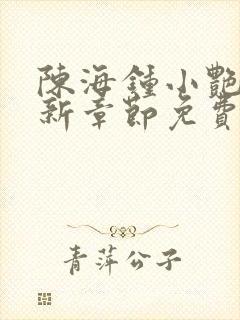 陳海鍾小艷
新章節免費
青萍公子